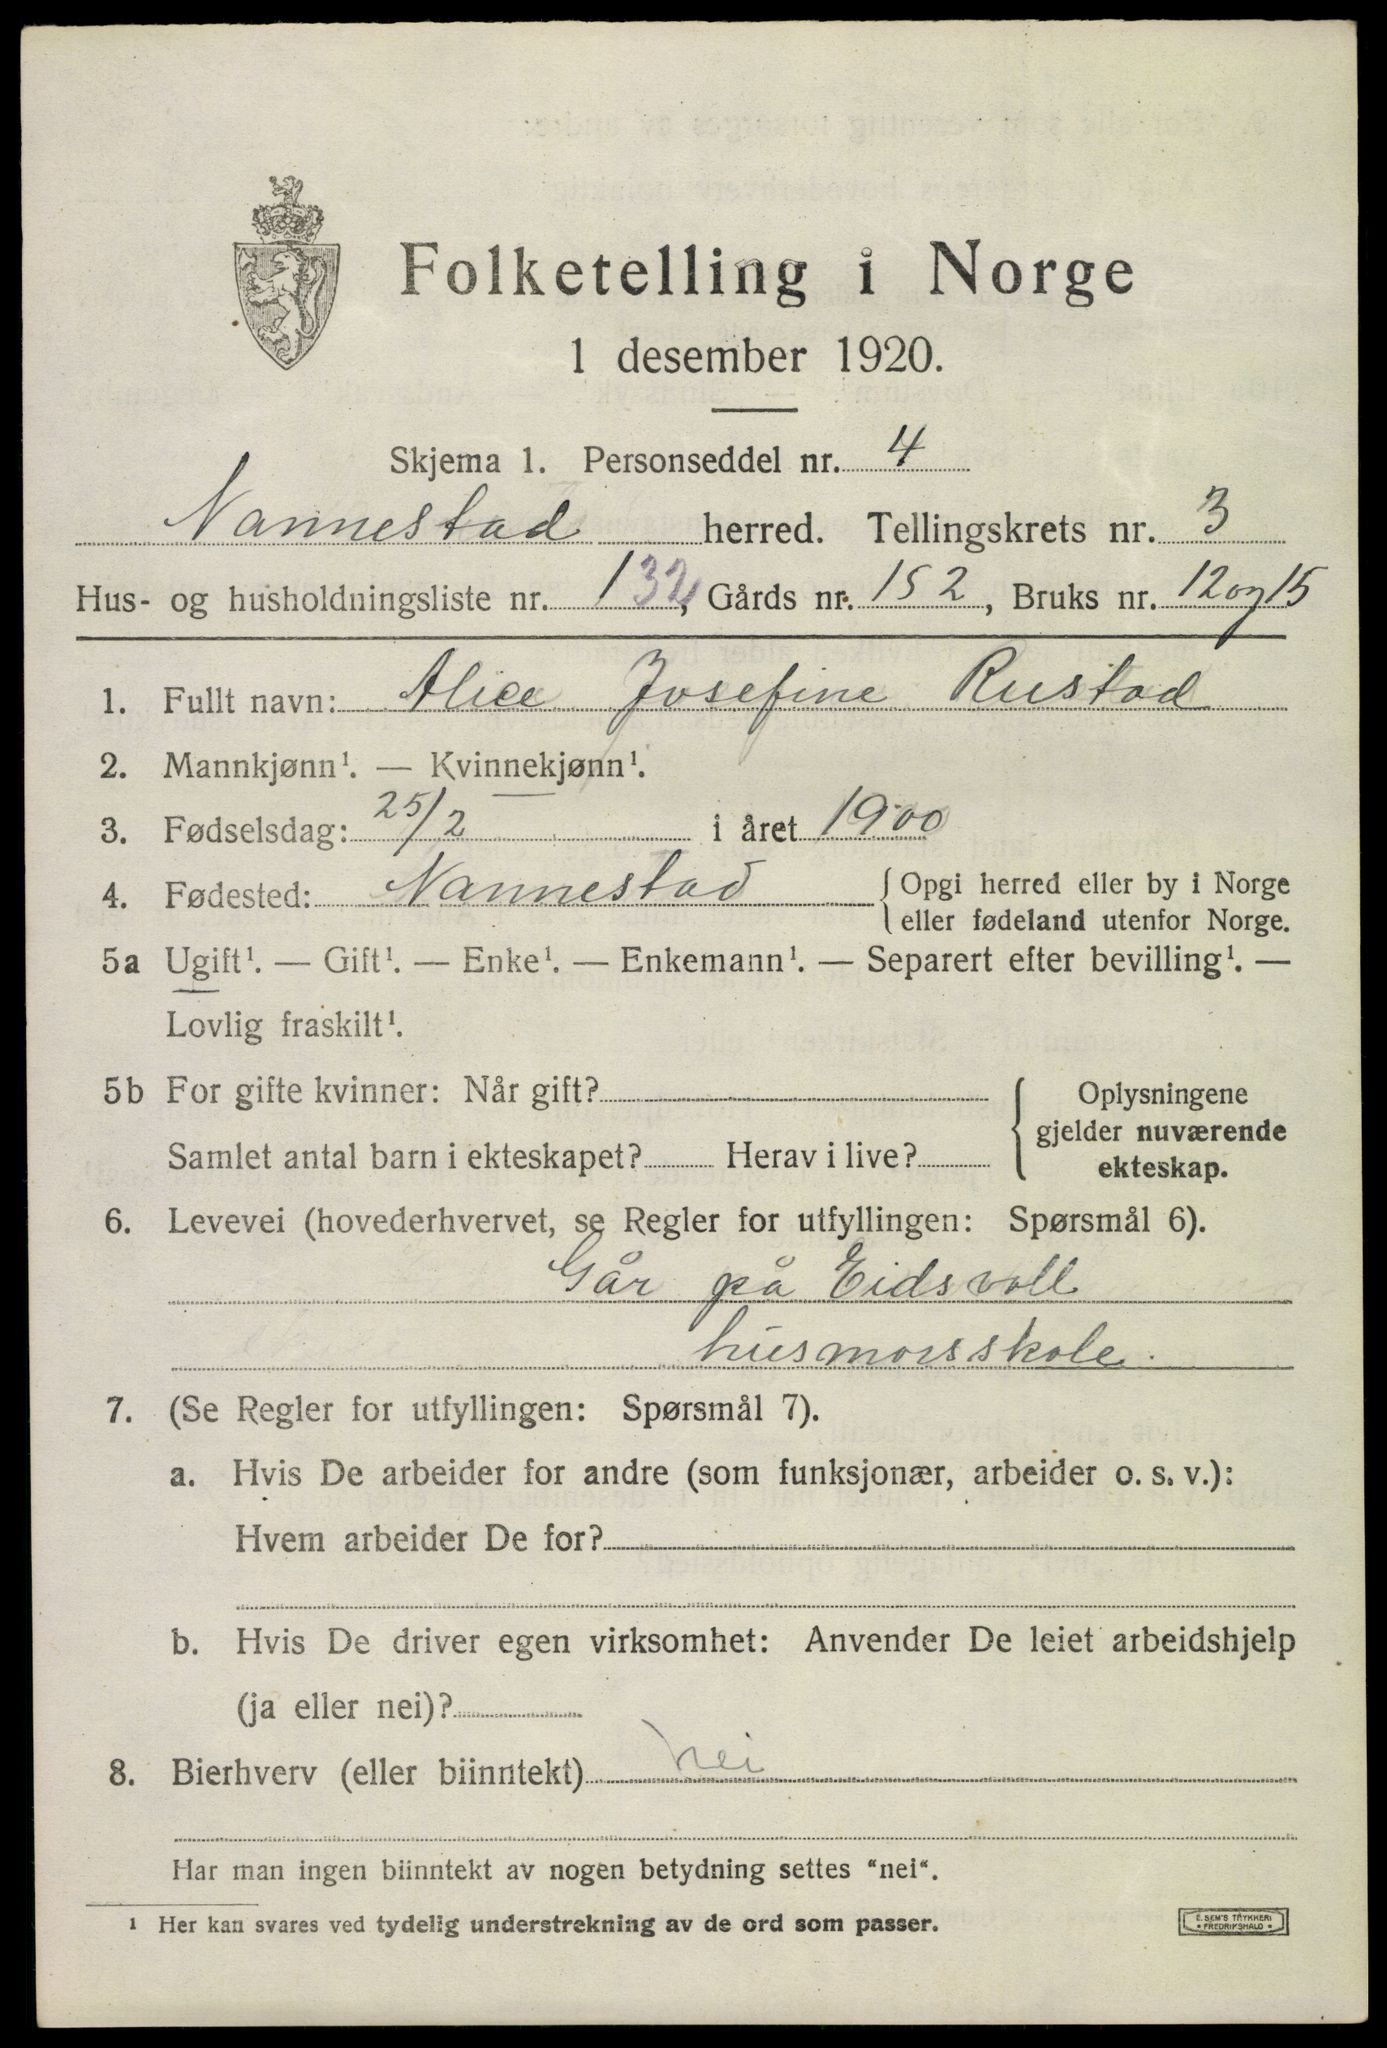 Folketelling i Norge
1 desember 1920.
Skjema 1. Personseddel nr. 4
Nannestad herred. Tellingskrets nr. 3
Hus- og husholdningsliste nr. 132, Gårds nr. 152, Bruks nr. 12 og 15
1. Fullt navn: Alice Josefine Rustad
2. Mannkjønn¹. — Kvinnekjønn¹.
3. Fødselsdag: 25/2 i året 1900
4. Fødested: Nannestad { Opgi herred eller by i Norge
eller fødeland utenfor Norge.
5a Ugift¹. — Gift¹. — Enke¹. — Enkemann¹. — Separert efter bevilling¹. —
Lovlig fraskilt¹.
5b For gifte kvinner: Når gift?
Samlet antal barn i ekteskapet? Herav i live?
Oplysningene
gjelder nuværende
ekteskap.
6. Levevei (hovederhvervet, se Regler for utfyllingen: Spørsmål 6).
Går på Eidsvoll
husmorsskole.
7. (Se Regler for utfyllingen: Spørsmål 7).
a. Hvis De arbeider for andre (som funksjonær, arbeider o. s. v.):
Hvem arbeider De for?
b. Hvis De driver egen virksomhet: Anvender De leiet arbeidshjelp
(ja eller nei)?
8. Bierhverv (eller biinntekt) nei
Har man ingen biinntekt av nogen betydning settes "nei".
¹ Her kan svares ved tydelig understrekning av de ord som passer.
E. SEM'S TRYKKERI
* FREDRIKSHALD *